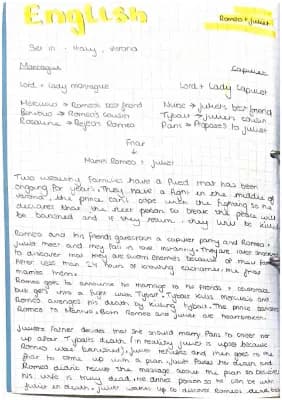 English
Romeo + Juliet
Set in - Italy, Verona
Montague
Capulet
Lord + Lady Montague
Lord + Lady Capulet
Mercutio → Romeo's best friend
Nurse → Juliet's best friend
Benvolio → Romeo's cousin
Tybalt → Juliet's cousin
Rosaline → Rejects Romeo
Paris → Proposes to Juliet
Friar
↓
Marries Romeo + Juliet
Two wealthy families have a feud that has been
ongoing for years. They have a fight in the middle of
Verona, the prince can't cope with the fighting so he
declares that the next person to break the peace will
be banished and if they return, they will be killed
Romeo and his friends gatecrash a capulet party and Romeo +
Juliet meet and they fall in love instantly. They are
to discover they are sworn enemies because of their
After less than 24 hours of knowing eachother the friar
marries them.
Romeo goes to announce his marriage to his friends +
but gets into a fight with Tybalt. Tybalt kills Mercutio and
Romeo avenges his death by killing Tybalt. The prince banishes
Romeo to Mantua. Both Romeo and Juliet are heartbroken.
Juliet's Father decides that she should marry Paris to cheer her
up after Tybalt's death (in reality Juliet is upset because
Romeo was banished), Juliet refuses and then goes to the
friar to come up with a plan. Juliet fakes her death and
Romeo didn't receive the message about the plan so believes
his wife is truly dead. He drinks poison so he can be with
Juliet in death. Juliet wakes up to discover Romeo dead